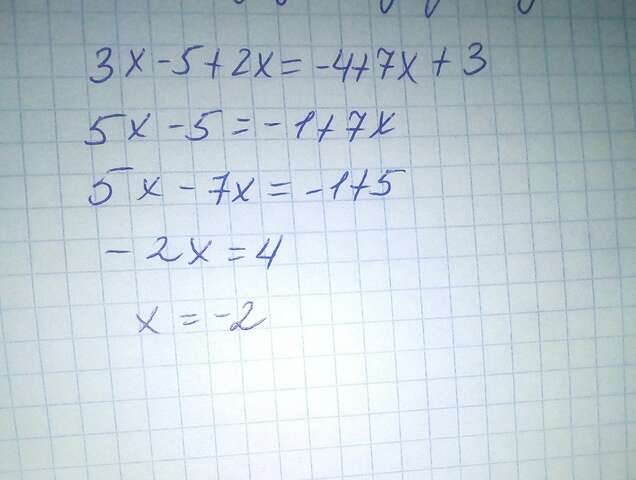 3x - 5 + 2x = -4 + 7x + 3
5x - 5 = -1 + 7x
5x - 7x = -1 + 5
-2x = 4
x = -2